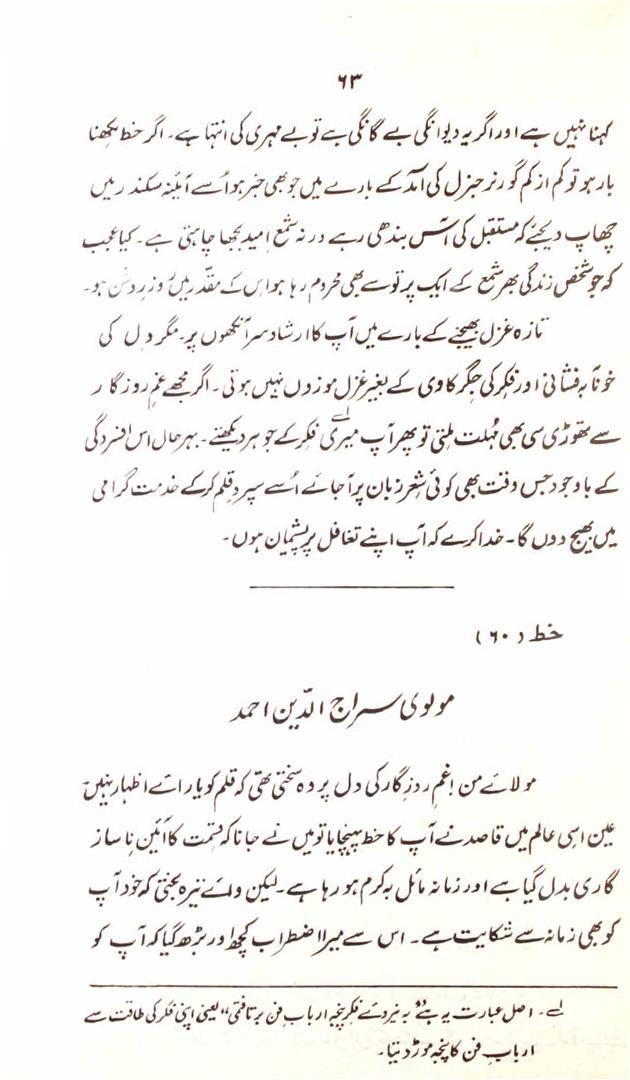 ۶۳
کہنا نہیں ہے اور اگر یہ دیوانگی بے گانگی ہے تو بے مہری کی انتہا ہے۔ اگر خط لکھنا
بار ہو تو کم از کم گورنر جنرل کی آمد کے بارے میں جو بھی خبر ہو اُسے آئینہ سکندر میں
چھاپ دیجئے کہ مستقبل کی آس بندھی رہے ورنہ شمع امید بجھا چاہتی ہے۔ کیا عجب
کہ جو شخص زندگی بھر شمع کے ایک پرتو سے بھی محروم رہا ہو اس کے مقدر میں روزِ روشن ہو۔
تازہ غزل بھیجنے کے بارے میں آپ کا ارشاد سر آنکھوں پر۔ مگر دل کی
خونابہ فشانی اور فکر کی جگر کاوی کے بغیر غزل موزوں نہیں ہوتی۔ اگر مجھے غمِ روزگار
سے تھوڑی سی بھی مہلت ملتی تو پھر آپ میری فکر کے جوہر دیکھتے۔ ۱ے بہرحال اس افسردگی
کے باوجود جس وقت بھی کوئی شعر زبان پر آجائے اُسے سپرد قلم کرکے خدمت گرامی
میں بھیج دوں گا۔ خدا کرے کہ آپ اپنے تغافل پر پشیمان ہوں۔
خط (۶۰)
مولوی سراج الدّین احمد
مولائے من! غمِ روزگار کی دل پر وہ سختی تھی کہ قلم کو یارائے اظہار نہیں
عین اسی عالم میں قاصد نے آپ کا خط پہنچایا تو میں نے جانا کہ قسمت کا آئین ناساز
گاری بدل گیا ہے اور زمانہ مائل بہ کرم ہو رہا ہے۔ لیکن وائے تیرہ بختی کہ خود آپ
کو بھی زمانہ سے شکایت ہے۔ اس سے میرا اضطراب کچھ اور بڑھ گیا کہ آپ کو
۱ے۔ اصل عبارت یہ ہے "بہ نیروئے فکر پنجہ اربابِ فن برتافتی" یعنی اپنی فکر کی طاقت سے
اربابِ فن کا پنجہ موڑ دیتا۔